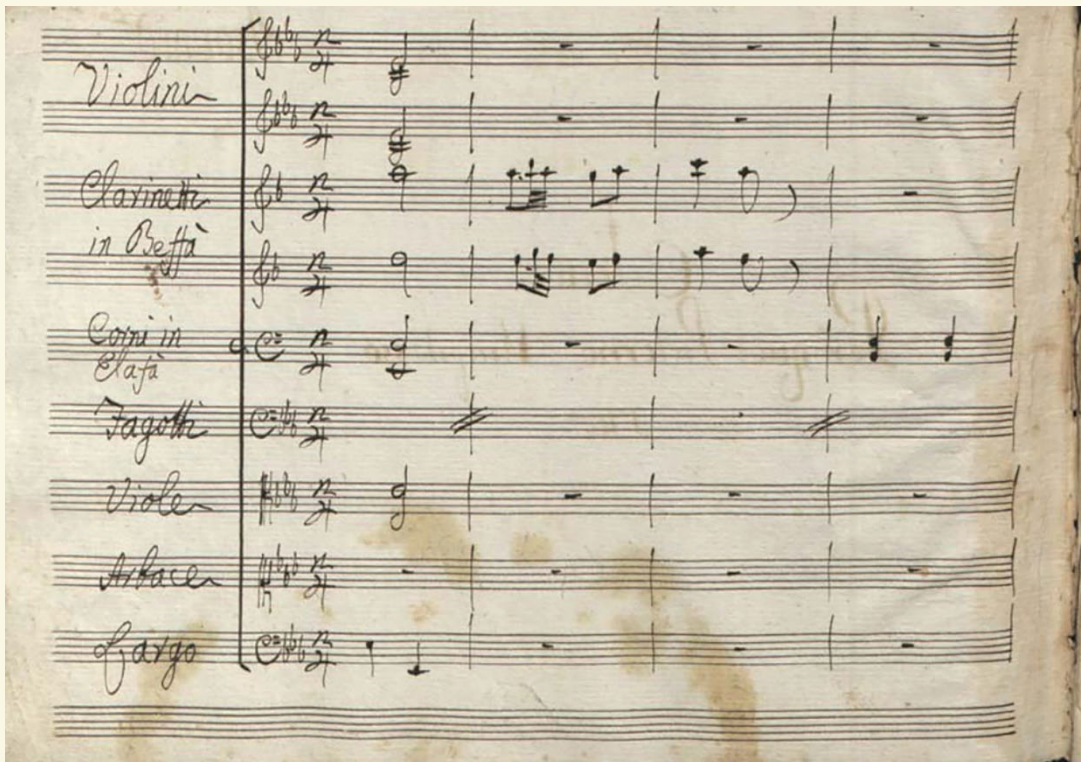 Violini
Clarinetti
in Beffà
Corni in
Elafà
Fagotti
Viole
Arbace
Largo